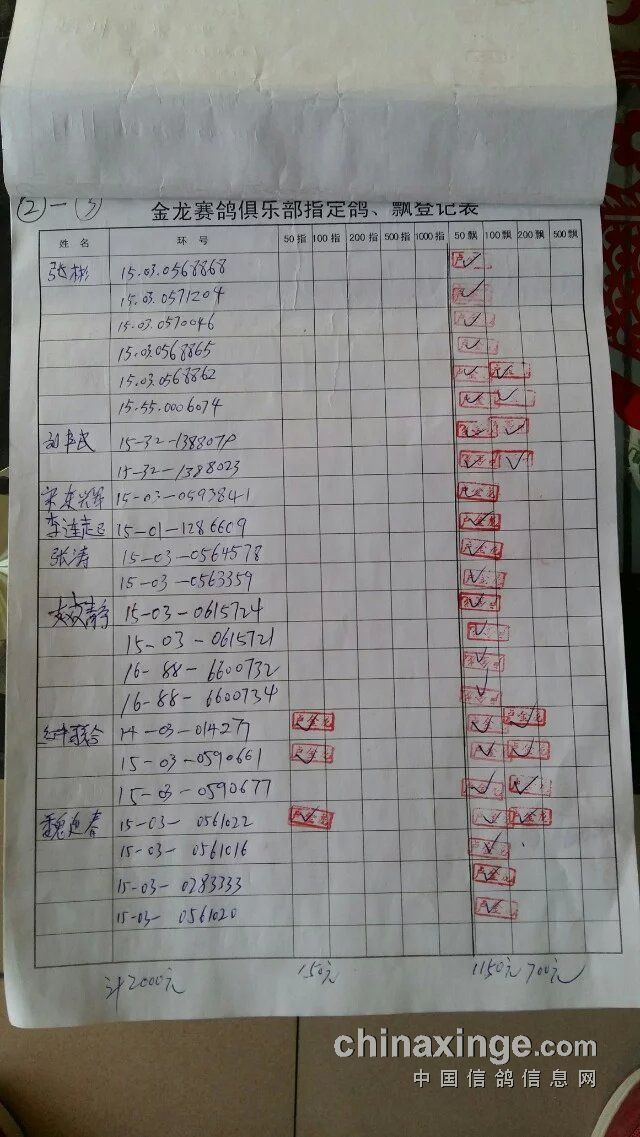 ②-③
金龙赛鸽俱乐部指定鸽、飘登记表
姓 名 环 号 50指 100指 200指 500指 1000指 50飘 100飘 200飘 500飘
张彬 15.03.0568868
15.03.0571204
15.03.0570046
15.03.0568865
15.03.0568862
15.55.0006074
15-32-1388079
15-32-1388023
15-03-0593841
15-01-1286609
张涛 15-03-0564578
15-03-0563359
15-03-0615724
15-03-0615721
16-88-6600732
16-88-6600734
14-03-014277
15-03-0590661
15-03-0590677
魏迎春 15-03-0561022
15-03-0561016
15-03-0283333
15-03-0561020
计2000元 150元 1150元 700元
chinaxinge.com
中国信鸽信息网